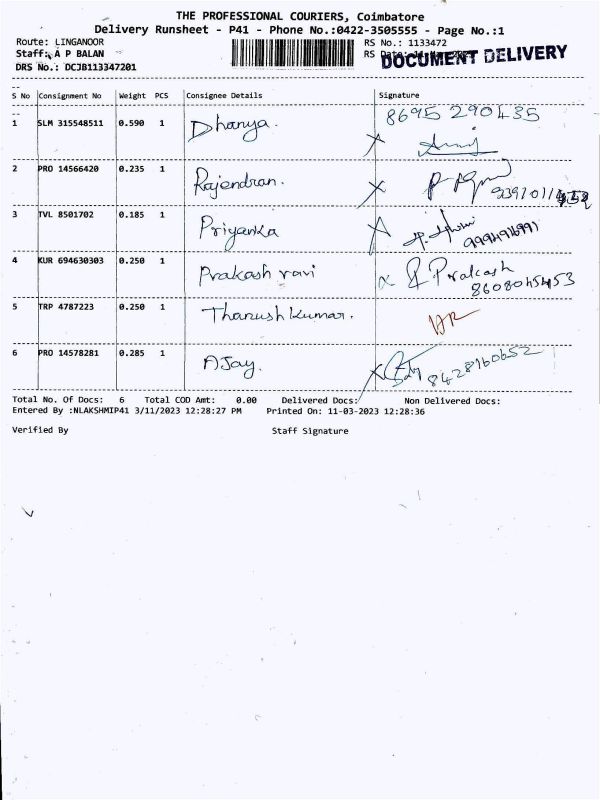 THE PROFESSIONAL COURIERS, Coimbatore
Delivery Runsheet - P41 - Phone No.:0422-3505555 - Page No.:1
Route: LINGANOOR RS No.: 1133472
Staff: A P BALAN RS Date: DOCUMENT DELIVERY
DRS No.: DCJB113347201
S No Consignment No Weight PCS Consignee Details Signature
1 SLM 315548511 0.590 1 Dhanya. 8695 290435
2 PRO 14566420 0.235 1 Rajendran.
3 TVL 8501702 0.185 1 Priyanka
4 KUR 694630303 0.250 1 Prakash ravi Prakash
8608045453
5 TRP 4787223 0.250 1 Thanush kumar.
6 PRO 14578281 0.285 1 AJay. 8428960652
Total No. Of Docs: 6 Total COD Amt: 0.00 Delivered Docs: Non Delivered Docs:
Entered By :NLAKSHMIP41 3/11/2023 12:28:27 PM Printed On: 11-03-2023 12:28:36
Verified By Staff Signature